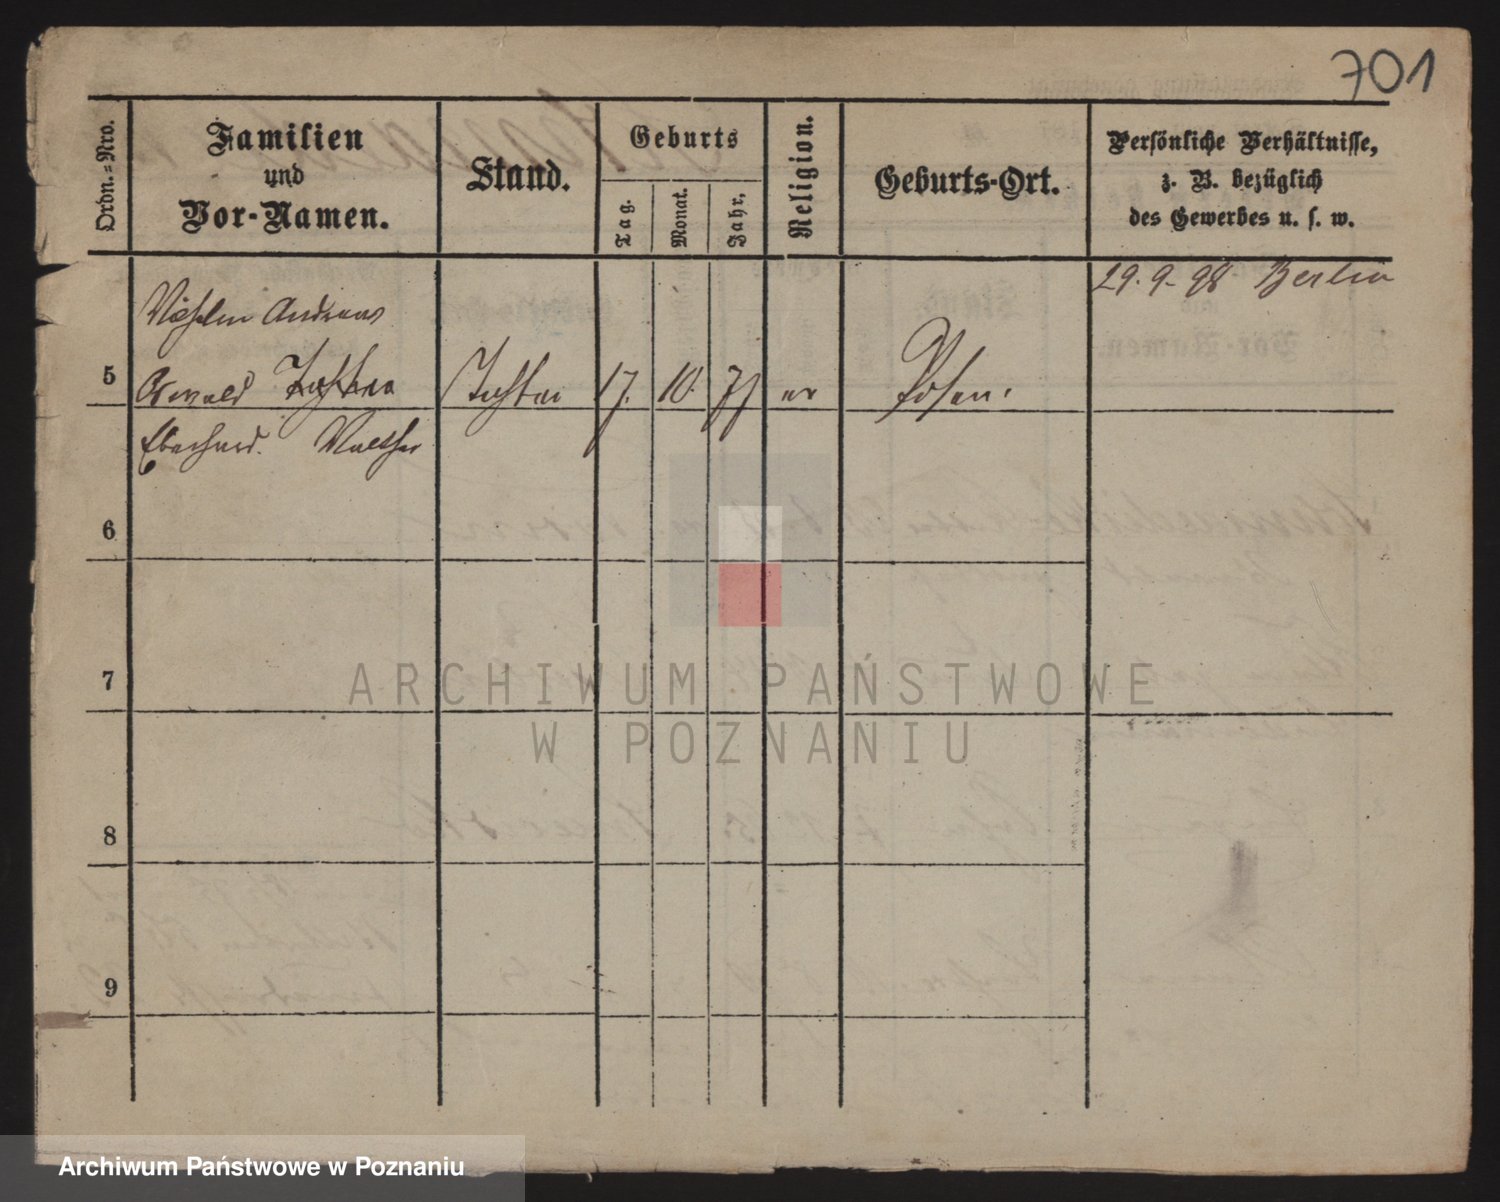 701
Ordn.-Nro.
Familien
und
Vor-Namen.
Stand.
Geburts
Tag.
Monat.
Jahr,
Religion.
Geburts-Ort.
Persönliche Verhältnisse,
z. B. bezüglich
des Gewerbes u. s. w.
29. 9. 98 Berlin
Andreas
5 Oswald 17. 10. 77 Posen.
Eberhard. Walther
6
7
8
9
ARCHIWUM PAŃSTWOWE
W POZNANIU
Archiwum Państwowe w Poznaniu